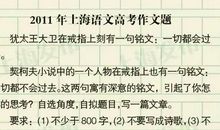 2011年上海语文高考作文题
犹太王大卫在戒指上刻有一句铭文：一切都会过
去。
契柯夫小说中的一个人物在戒指上也有一句铭文：一
切都不会过去。这两句寓有深意的铭文，引起了你怎
的思考？自选角度，自拟题目，写一篇文章。
要求：(1)不少于800字，(2)不要写成诗歌，(3)不